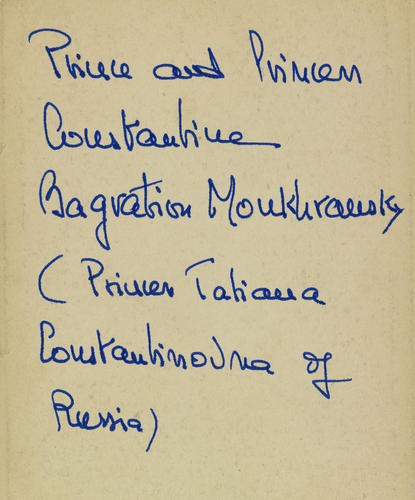 Prince and Princess
Constantine
Bagration Moukhransky
(Princess Tatiana
Constantinovna of
Russia)